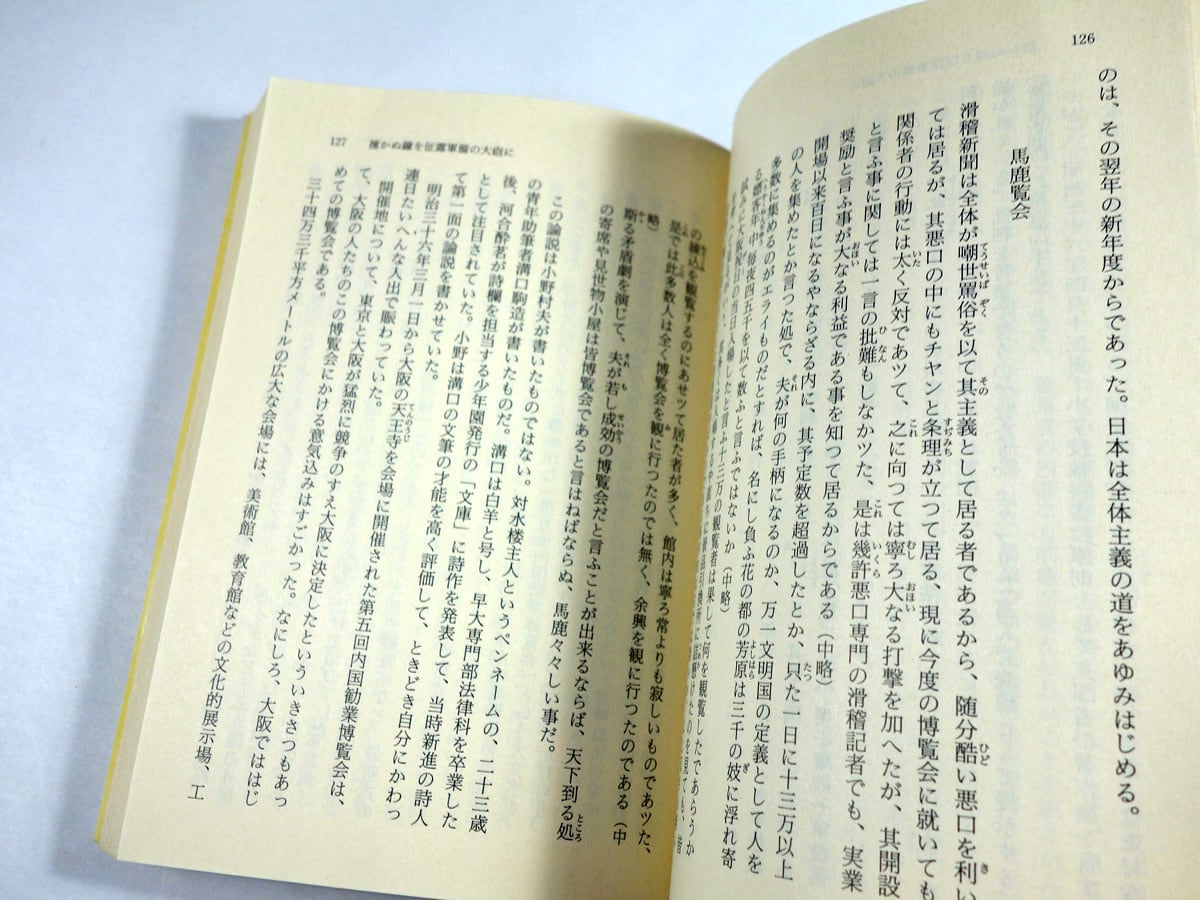 126
のは、その翌年の新年度からであった。日本は全体主義の道をあゆみはじめる。
馬鹿覧会
滑稽新聞は全体が嘲世罵俗を以て其主義として居る者であるから、随分酷い悪口を利い
ては居るが、其悪口の中にもチヤンと条理が立つて居る、現に今度の博覧会に就いても
関係者の行動には太く反対であツて、之に向つては寧ろ大なる打撃を加へたが、其開設
と言ふ事に関しては一言の批難もしなかツた、是は幾許悪口専門の滑稽記者でも、実業
奨励と言ふ事が大なる利益である事を知つて居るからである（中略）
開場以来百日になるやならざる内に、其予定数を超過したとか、只た一日に十三万以上
の人を集めたとか言つた処で、夫が何の手柄になるのか、万一文明国の定義として人を
多数に集めるのがエライものだとすれば、名にし負ふ花の都の芳原は三千の妓に浮れ寄
る嫖客年中毎夜四五千を以て数ふと言ふではないか（中略）
試みに大阪祝日の当日入場したと言ふ十三万の観覧者は果して何を観覧したであらうか
127 撞かぬ鐘を征露軍備の大砲に
の練込を観覧するのにあせツて居た者が多く、館内は寧ろ常よりも寂しいものであツた、
是では此多数人は全く博覧会を観に行つたのでは無く、余興を観に行つたのである（中
略）
斯る矛盾劇を演じて、夫が若し成効の博覧会だと言ふことが出来るならば、天下到る処
の寄席や見世物小屋は皆博覧会であると言はねばならぬ、馬鹿々々しい事だ。
この論説は小野村夫が書いたものではない。対水楼主人というペンネームの、二十三歳
の青年助筆者溝口駒造が書いたものだ。溝口は白羊と号し、早大専門部法律科を卒業した
後、河合酔名が詩欄を担当する少年園発行の「文庫」に詩作を発表して、当時新進の詩人
として注目されていた。小野は溝口の文筆の才能を高く評価して、ときどき自分にかわっ
て第一面の論説を書かせていた。
明治三十六年三月一日から大阪の天王寺を会場に開催された第五回内国勧業博覧会は、
連日たいへんな人出で賑わっていた。
開催地について、東京と大阪が猛烈に競争のすえ大阪に決定したといういきさつもあっ
て、大阪の人たちのこの博覧会にかける意気込みはすごかった。なにしろ、大阪でははじ
めての博覧会である。
三十四万三千平方メートルの広大な会場には、美術館、教育館などの文化的展示場、工